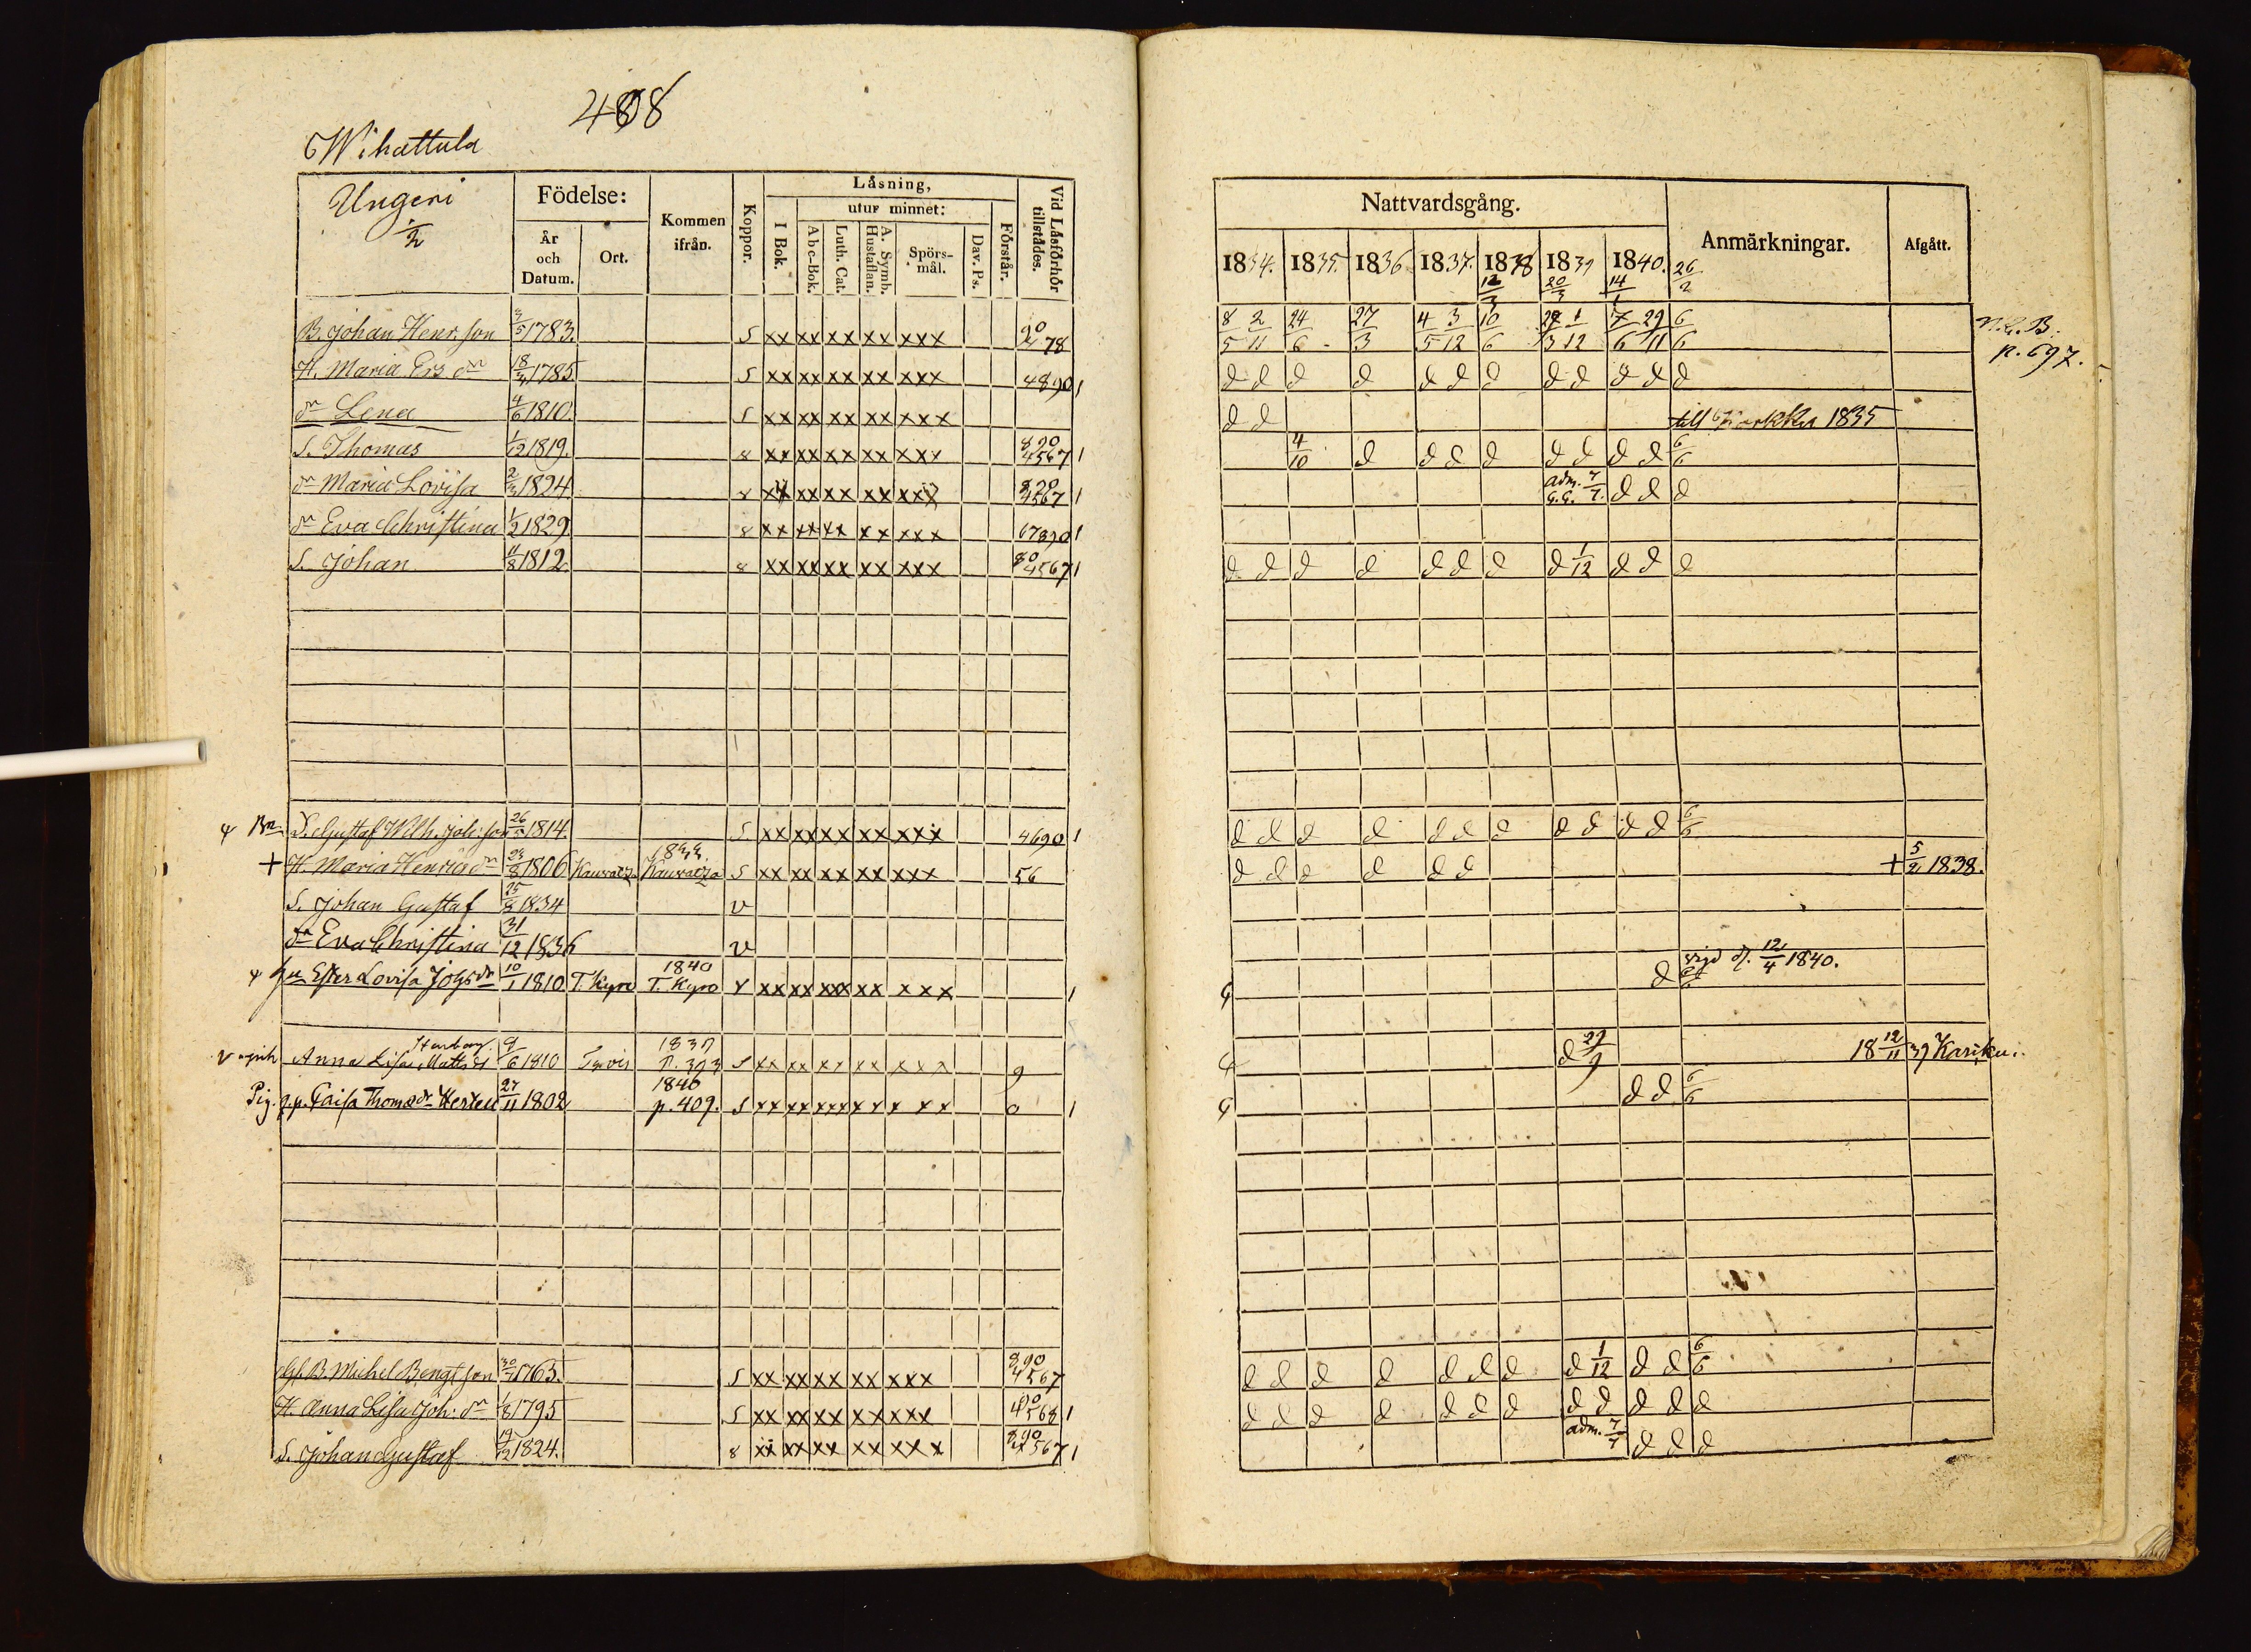 488
Wihattula
Ungeri 1/2
Födelse:
År och Datum.
Ort.
Kommen ifrån.
Koppor.
Läsning,
utur minnet:
I Bok.
Abc-Bok.
Luth. Cat.
A. Symb. Hustaflan.
Spörs-mål.
Dav. Ps.
Förstår.
Vid Läsförhör tillstädes.
Nattvardsgång.
1834. 1835. 1836 1837. 1838 1839 1840.
Anmärkningar.
Afgått.
12/3 20/3 14/1 26/2
B. Johan Henr. son 3/5 1783. S xx xx xx xx xxx 90 78 8/5 2/11 24/6 27/3 4/5 3/12 10/6 1/12 7/6 29/11 6/6
N.C.B. p. 697.
H. Maria Ers dr 1785 S xx xx xx xx xxx 4890 1 d d d d d d d d d d d d
dr Lena 4/6 1810 S xx xx xx xx xxx d d till 1835
S. Thomas 1/12 1819. 8 xx xx xx xx xxx 890 4567 1 4/10 d d d d d d d d 6/6
dr Maria Lovisa 2/3 1824 xx xx xx xx xxx 890 4567 1 adm. 7/7 G.G. d d d
dr Eva Christina 1/2 1829 8 xx xx xx xx xxx 67890 1
S. Johan 11/8 1812 8 xx xx xx xx xxx 80 4567 1 d d d d d d d d 1/12 d d d
Bn S. Gustaf Wilh. Joh. son 26 1814. S xx xx xx xx xxx 4690 1 d d d d d d d d d d d 6/6
+ H. Maria Henrics dr 1806 Kauvatza 1833. Kauvatza S xx xx xx xx xxx 56 d d d d d d + 5/2 1838.
S. Johan Gustaf 25/8 1834 v
dr Eva Christina 31/12 1836 v
hu Ester Lovisa Johs dr 10/1 1810 T. Kyro 1840 T. Kyro v xx xx xxx xx xxx 1 d vigd d. 12/4 1840.
Anna Lisa Matts dr 9/6 1810 1837 p. 393 S xx xx xx xx xxx 9 d 29/9 18 12/11 39 Kariku.
Pig. p.p. Caisa Thomæ dr 27/11 1802 1840 p. 409. S xx xx xxx xx xxx 0 1 d d 6/6
B. Michel Bengtson 1763. S xx xx xx xx xxx 890 4567 d d d d d d d d 1/12 d d 6/6
H. Anna Lisa Joh. dr 1/8 1795 S xx xx xx xx xxx 568 1 d d d d d d d d d d d d
S. Johan Gustaf 19/12 1824. 8 xx xx xx xx xxx 890 4567 1 adm. 7/7 d d d